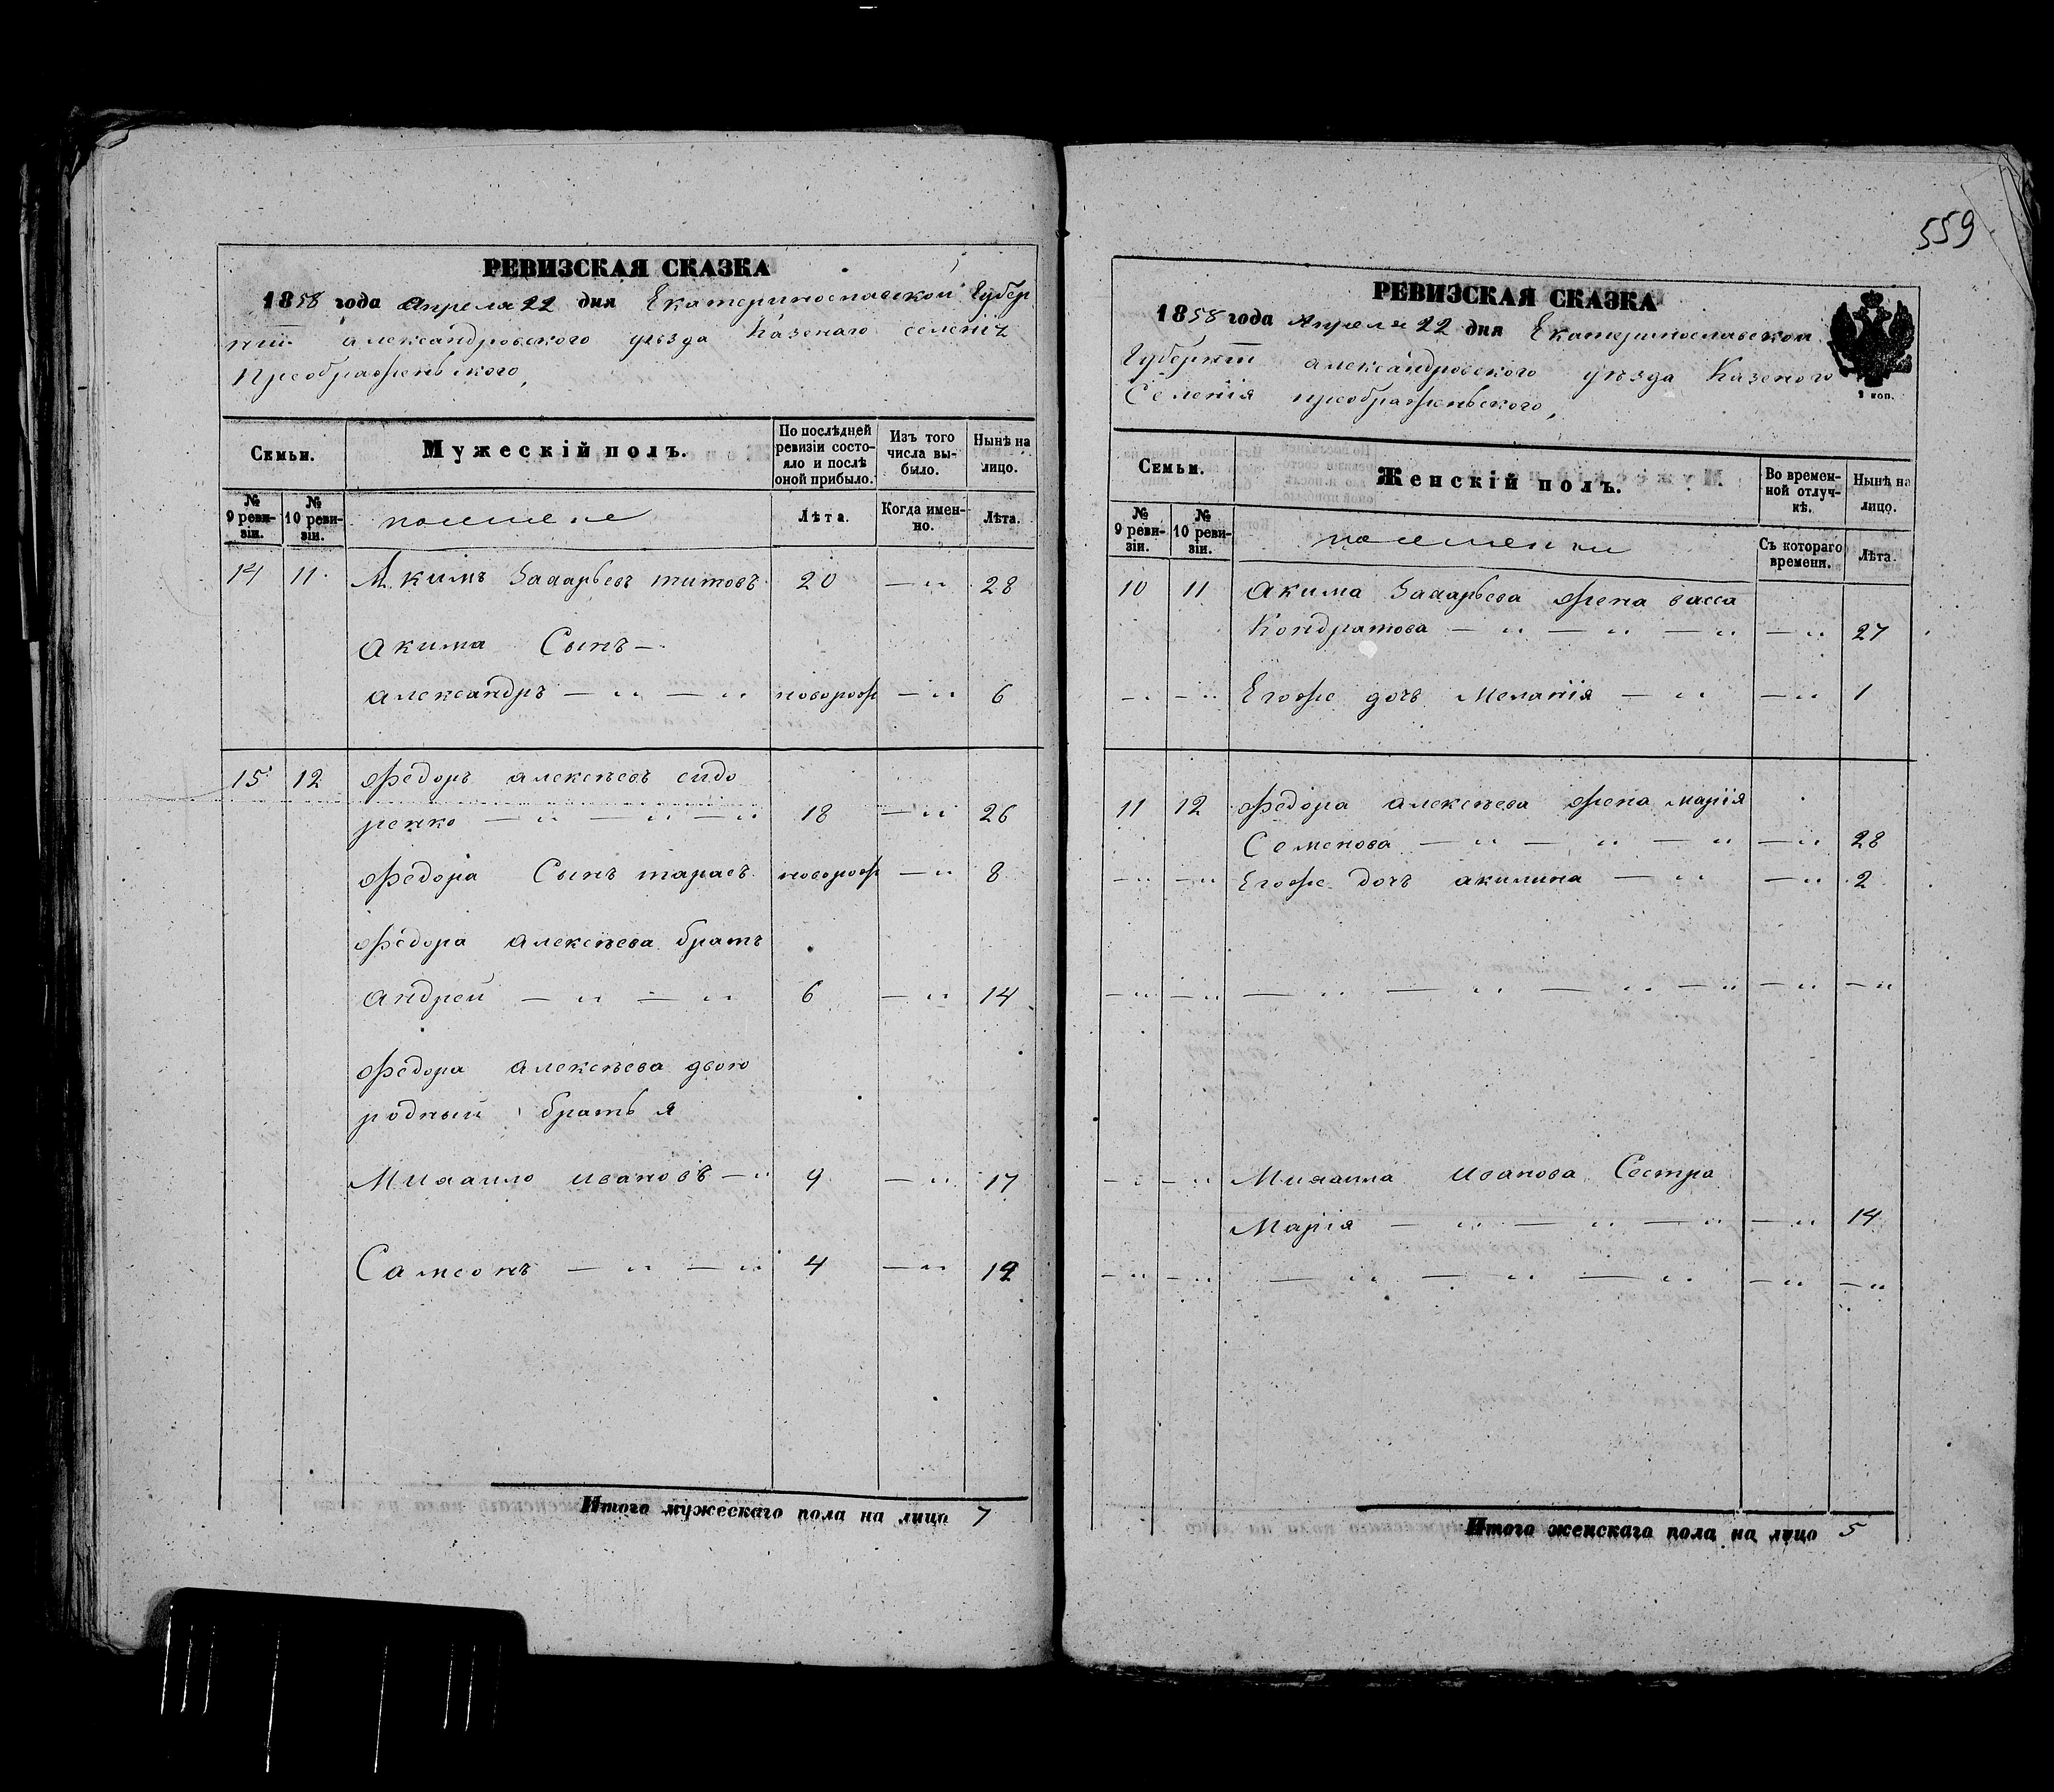 559
РЕВИЗСКАЯ СКАЗКА
1858 года Апреля 22 дня Екатеринославской Губер
нии александровского уезда Казенаго селения
Преображенского,
Семьи.
Мужескій полъ.
По послѣдней ревизіи состояло и послѣ оной прибыло.
Изъ того числа выбыло.
Нынѣ на лицо.
№ 9 ревизіи.
№ 10 ревизіи.
Лѣта.
Когда именно.
Лѣта.
14 11 Акимъ Захарьевъ титовъ 20 — „ 28
Акима Сынъ —
александръ — „ — „ новорож — „ 6
15 12 Федоръ алексѣевъ сидо
ренко — „ — „ — „ 18 — „ 26
Федора Сынъ тарасъ новорож — „ 8
Федора алексѣева братъ
андрей — „ — „ 6 — „ 14
Федора алексѣева двою
родный братья
Михаило ивановъ — „ 9 — „ 17
Самсонъ — „ — „ 4 — „ 12
Итого мужескаго пола на лицо 7
РЕВИЗСКАЯ СКАЗКА
1858 года Апреля 22 дня Екатеринославской
Губернии александровского уѣзда Казеного
Селенія преображенского,
2 коп.
Семьи.
Женскій полъ.
Во временной отлучкѣ.
Нынѣ на лицо.
№ 9 ревизіи.
№ 10 ревизіи.
Съ котораго времени.
Лѣта.
10 11 Акима Захарьева жена васса
Кондратова — „ — „ — „ — „ 27
— „ — „ Егоже дочь Меланія — „ — „ 1
11 12 Федора алексѣева жена марія
Семенова — „ — „ — „ — „ 28
— „ — „ Егоже дочь акилина — „ — „ 2
— „ — „ — „ — „ — „ — „ — „ — „
— „ — „ Михаила иванова Сестра
Марія — „ — „ — „ — „ 14
— „ — „ — „ — „ — „ — „ — „
Итого женскаго пола на лицо 5